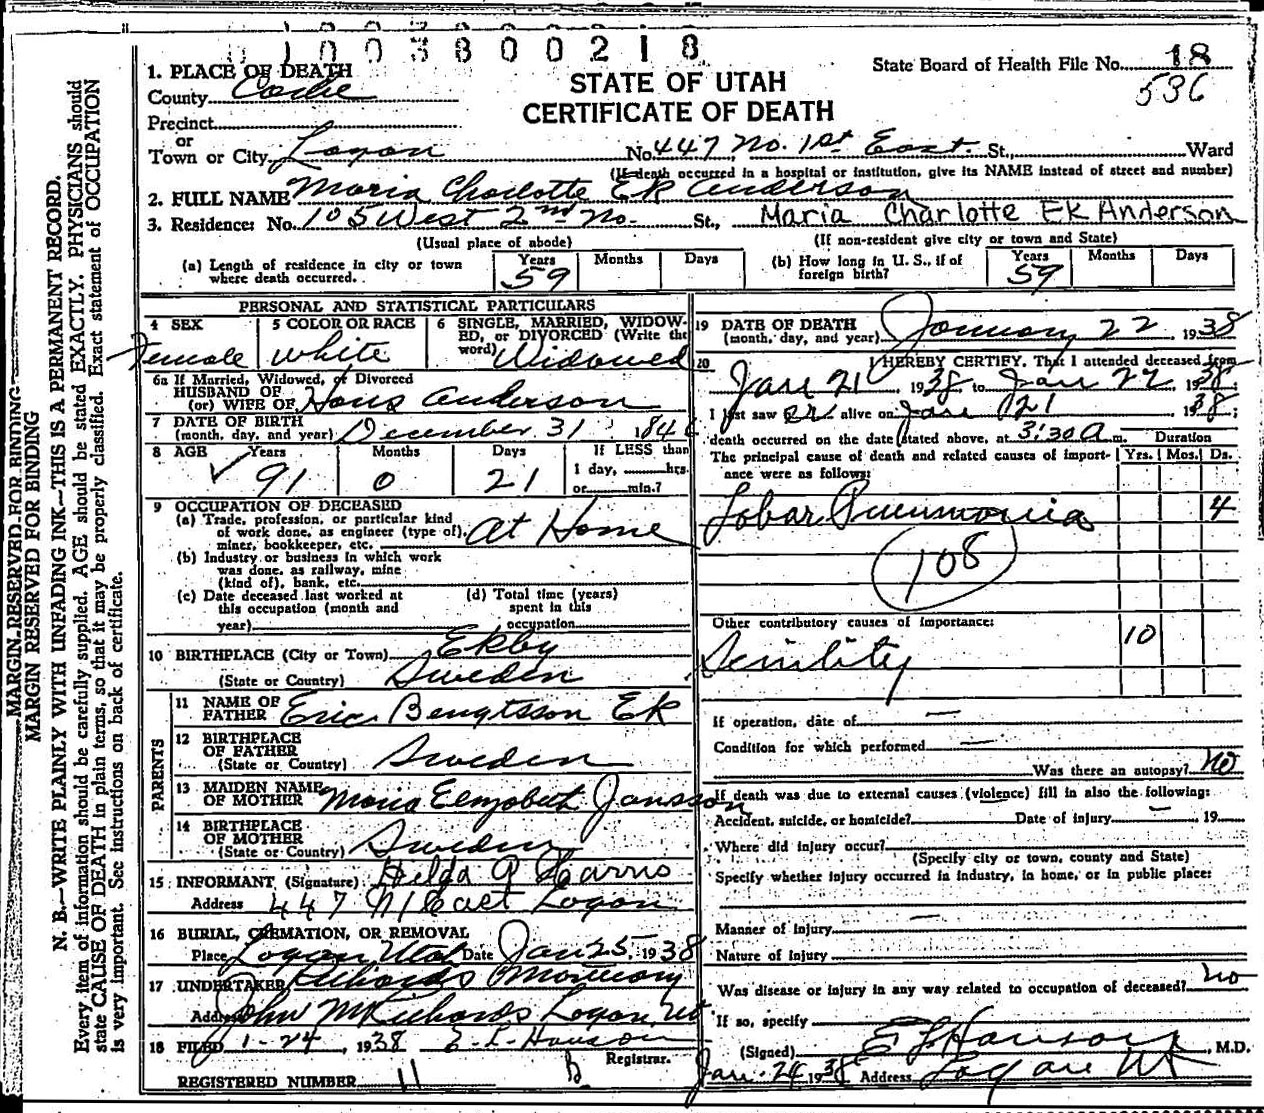 1003800218
1. PLACE OF DEATH
County Cache
Precinct
or
Town or City Logan No. 447 No. 1st East St., Ward
(If death occurred in a hospital or institution, give its NAME instead of street and number)
STATE OF UTAH
CERTIFICATE OF DEATH
State Board of Health File No. 18
536
2. FULL NAME Maria Charlotte Ek Anderson
3. Residence: No. 105 West 2nd No. St., Maria Charlotte Ek Anderson
(Usual place of abode) (If non-resident give city or town and State)
(a) Length of residence in city or town where death occurred. Years 59 Months Days
(b) How long in U. S., if of foreign birth? Years 59 Months Days
PERSONAL AND STATISTICAL PARTICULARS
4 SEX Female
5 COLOR OR RACE white
6 SINGLE, MARRIED, WIDOWED, or DIVORCED (Write the word) Widowed
6a If Married, Widowed, or Divorced
HUSBAND OF
(or) WIFE OF Hans Anderson
7 DATE OF BIRTH
(month, day, and year) December 31 1846
8 AGE Years 91 Months 0 Days 21 If LESS than
1 day, hrs.
or min.?
9 OCCUPATION OF DECEASED
(a) Trade, profession, or particular kind
of work done, as engineer (type of),
miner, bookkeeper, etc. At Home
(b) Industry or business in which work
was done, as railway, mine
(kind of), bank, etc.
(c) Date deceased last worked at
this occupation (month and
year)
(d) Total time (years)
spent in this
occupation
10 BIRTHPLACE (City or Town) Ekby
(State or Country) Sweden
PARENTS
11 NAME OF FATHER Eric Bengtsson Ek
12 BIRTHPLACE OF FATHER
(State or Country) Sweden
13 MAIDEN NAME OF MOTHER Maria Elizabeth Jansson
14 BIRTHPLACE OF MOTHER
(State or Country) Sweden
15 INFORMANT (Signature) Hilda A Harris
Address 447 N 1 East Logan
16 BURIAL, CREMATION, OR REMOVAL
Place Logan, Utah Date Jan 25, 1938
17 UNDERTAKER Richards Mortuary
Address John M Richards Logan, Ut
18 FILED 1-24, 1938 E. L. Hanson
Registrar.
REGISTERED NUMBER 11
19 DATE OF DEATH
(month, day, and year) January 22 1938
20 I HEREBY CERTIFY, That I attended deceased from
Jan 21 1938 to Jan 22 1938;
I last saw er alive on Jan 21 1938;
death occurred on the date stated above, at 3:30 A m. Duration
The principal cause of death and related causes of importance were as follows: Yrs. Mos. Ds.
Lobar Pneumonia 4
108
Other contributory causes of importance:
Senility 10
If operation, date of —
Condition for which performed —
Was there an autopsy? no
If death was due to external causes (violence) fill in also the following:
Accident, suicide, or homicide? Date of injury — 19
Where did injury occur?
(Specify city or town, county and State)
Specify whether injury occurred in industry, in home, or in public place:
Manner of injury
Nature of injury
Was disease or injury in any way related to occupation of deceased? no
If so, specify
(Signed) E L Hanson, M.D.
Jan. 24 1938 Address Logan Ut
MARGIN RESERVED FOR BINDING
MARGIN RESERVED FOR BINDING
N. B.—WRITE PLAINLY WITH UNFADING INK—THIS IS A PERMANENT RECORD.
Every item of information should be carefully supplied. AGE should be stated EXACTLY. PHYSICIANS should
state CAUSE OF DEATH in plain terms, so that it may be properly classified. Exact statement of OCCUPATION
is very important. See instructions on back of certificate.